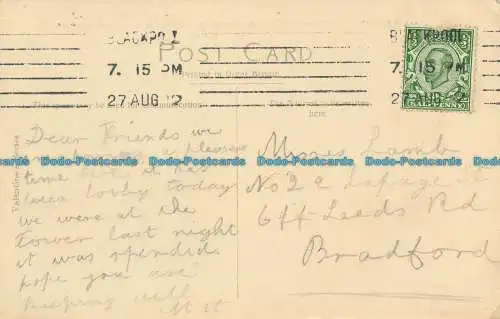 BLACKPOOL
7. 15 PM
27 AUG 12
BLACKPOOL
7. 15 PM
27 AUG 12
POST CARD
Printed in Great Britain
This space may be used for communication
The address to be written
here.
Valentine
Dear Friends we
a pleasant
time but it has
been today
we were at the
Tower last night
it was spendid
hope you are
keeping well
Misses Lamb
No 2
off Leeds Rd
Bradford
Dodo-Postcards Dodo-Postcards Dodo-Postcards Dodo-Postcards